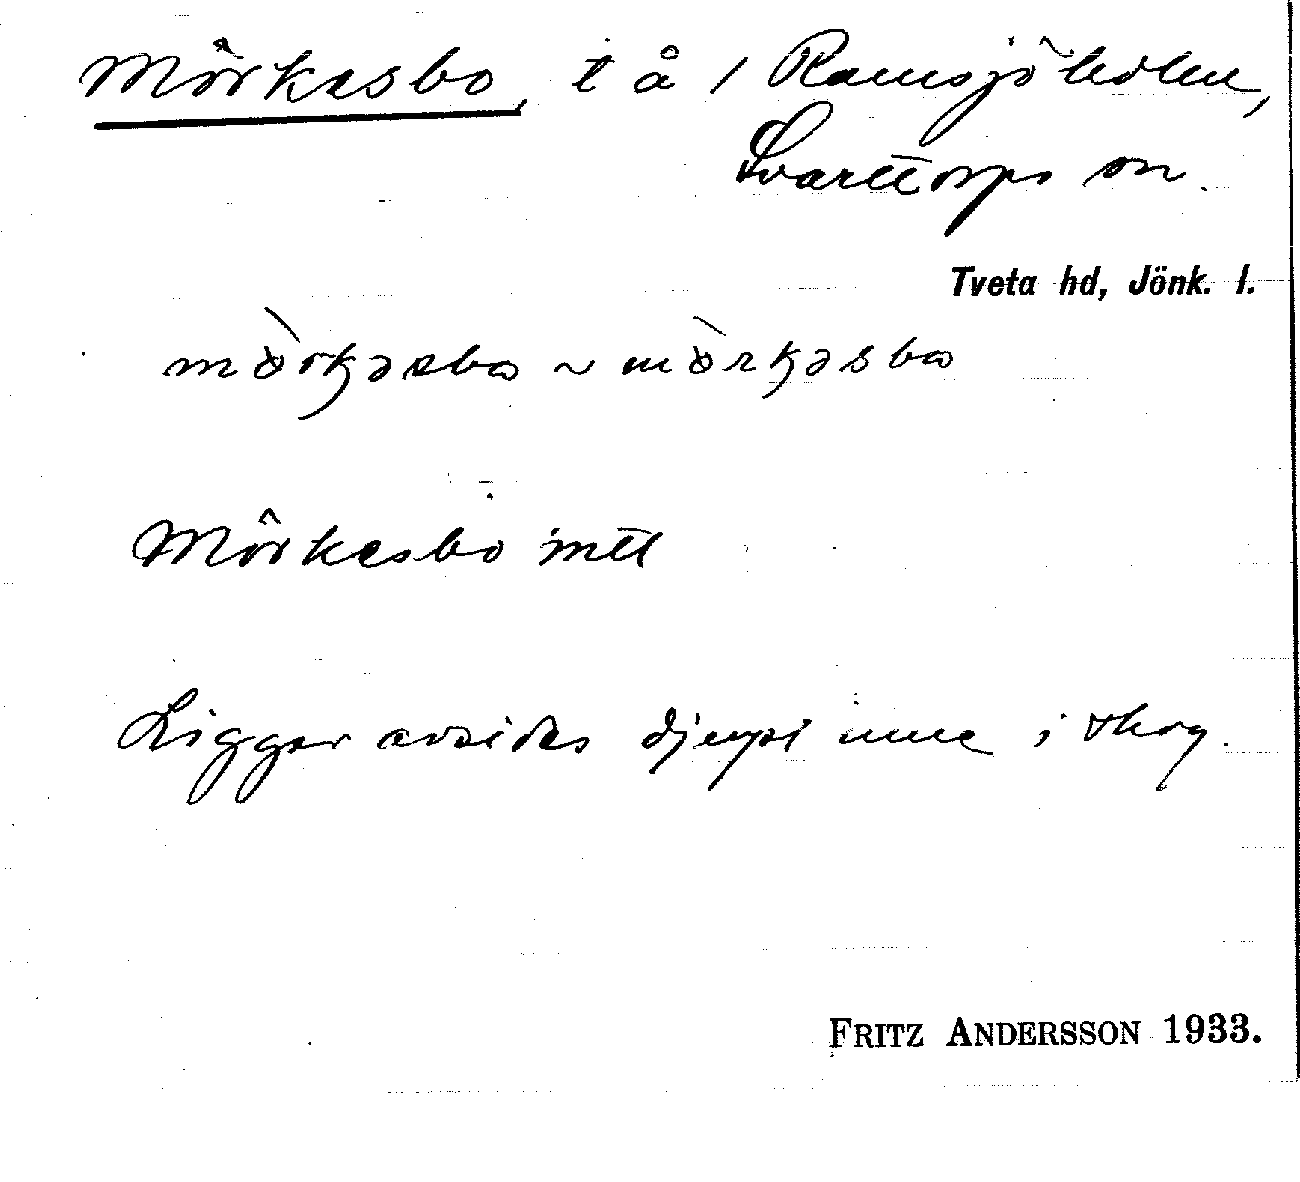 Mörkesbo, t å 1 Ramsjöholm,
Svarttorps sn.
Tveta hd, Jönk. l.
Mörkesbo mtl
Ligger avsides djupt inne i skog.
FRITZ ANDERSSON 1933.